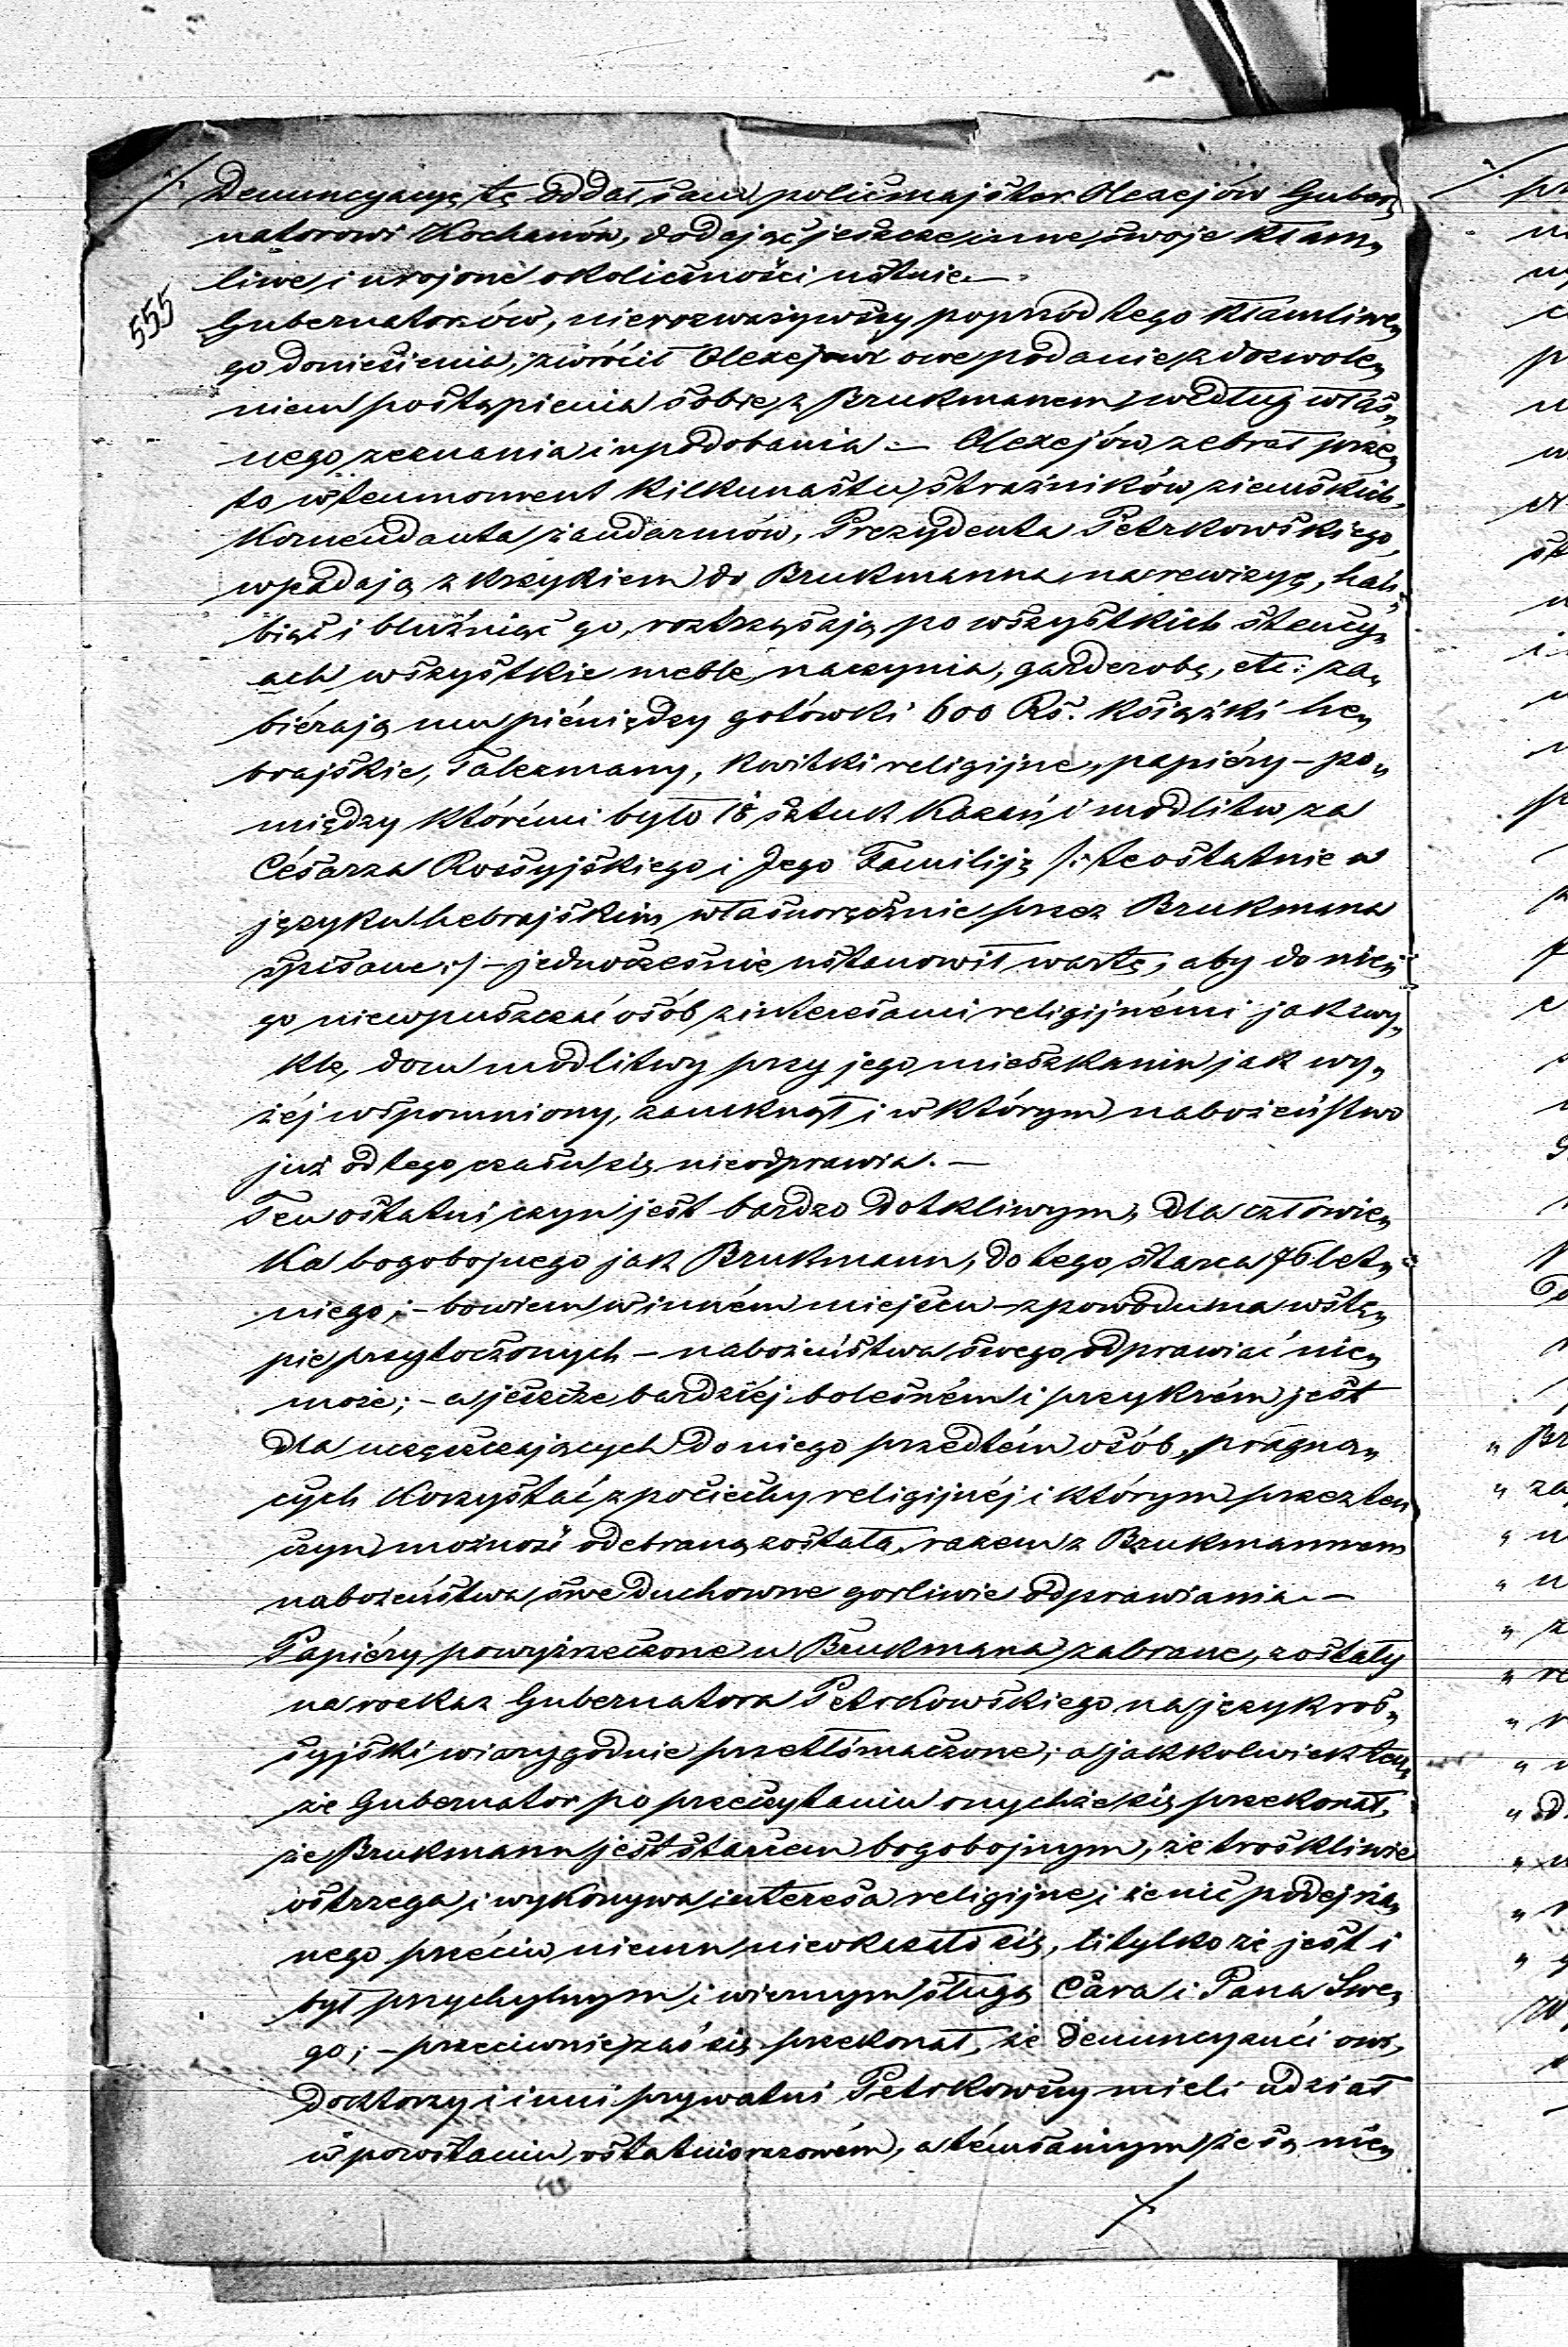 Denuncyacyę tę oddał sam policmajster Olexejów Guber„
natorowi Kochanów, dodając jeszcze inne swoje kłam„
liwe i urojone okoliczności ustnie. —
555
Gubernatorów, nierozważywszy poprzód tego kłamliwe„
go doniesienia, zwrócił Olexejowi owe podanie z dozwole„
niem postąpienia sobie z Brukmanem według włas„
nego zeznania i upodobania. — Olexejów zebrał prze„
to w ten moment kilkunastu strażników ziemskich,
Komendanta żandarmów, Prezydenta Petrkowskiego,
wpadają z krzykiem do Brukmanna na rewizyę, hań„
biąc i bluźniąc go, roztrzęsają po wszystkich stancy„
ach wszystkie meble, naczynia, garderobę, etc: za„
biérają mu piéniędzy gotówki 600 Rs. książki he„
brajskie, Talezmany, kwitki religijne, papiéry – po„
między którémi było 18 sztuk kazań i modlitw za
Césarza Rossyjskiego i Jego Familiję /: te ostatnie w
języku hebrajskim własnoręcznie przez Brukmana
spisane :/ – jednocześnie ustanowił wartę, aby do nie„
go niewpuszczać osób z interesami religijnémi jak zwy„
kle, dom modlitwy przy jego mieszkaniu jak wy„
żéj wspomniony, zamknął i w którym nabożeństwo
już od tego czasu się nieodprawia. —
Ten ostatni czyn jest bardzo dotkliwym, dla człowie„
ka bogobojnego jak Brukmann, do tego starca 76 let„
niego; – bowiem w inném miejscu – z powodu na wstę„
pie przytoczonych – nabożeństwa swego odprawiać nie„
może; – a jeszcze bardziéj bolesném i przykrém jest
dla uczęszczających do niego przedtém osób, pragną„
cych korzystać z pociechy religijnéj i którym przez ten
czyn możność odebraną została, razem z Brukmannem
nabożeństwa swe duchowne gorliwie odprawiania. —
Papiéry powyżrzeczone u Brukmana zabrane, zostały
na rozkaz Gubernatora Petrkowskiego na język ros„
syjski wiarygodnie przetłómaczone; a jakkolwiek ten„
że Gubernator po przeczytaniu onychże się przekonał,
że Brukmann jest starcem bogobojnym, że troskliwie
ostrzega i wykonywa interesa religijne i że nic podejrza„
nego przéciw niemu nieokazało się, li tylko że jest i
był przychylnym i wiernym sługą Cara i Pana Swe„
go; – przeciwnie zaś się przekonał, że denuncyanci owi,
doktorzy i inni prywatni Petrkowscy mieli udział
w powstaniu ostatniorazowém, a tém samym że są nie„